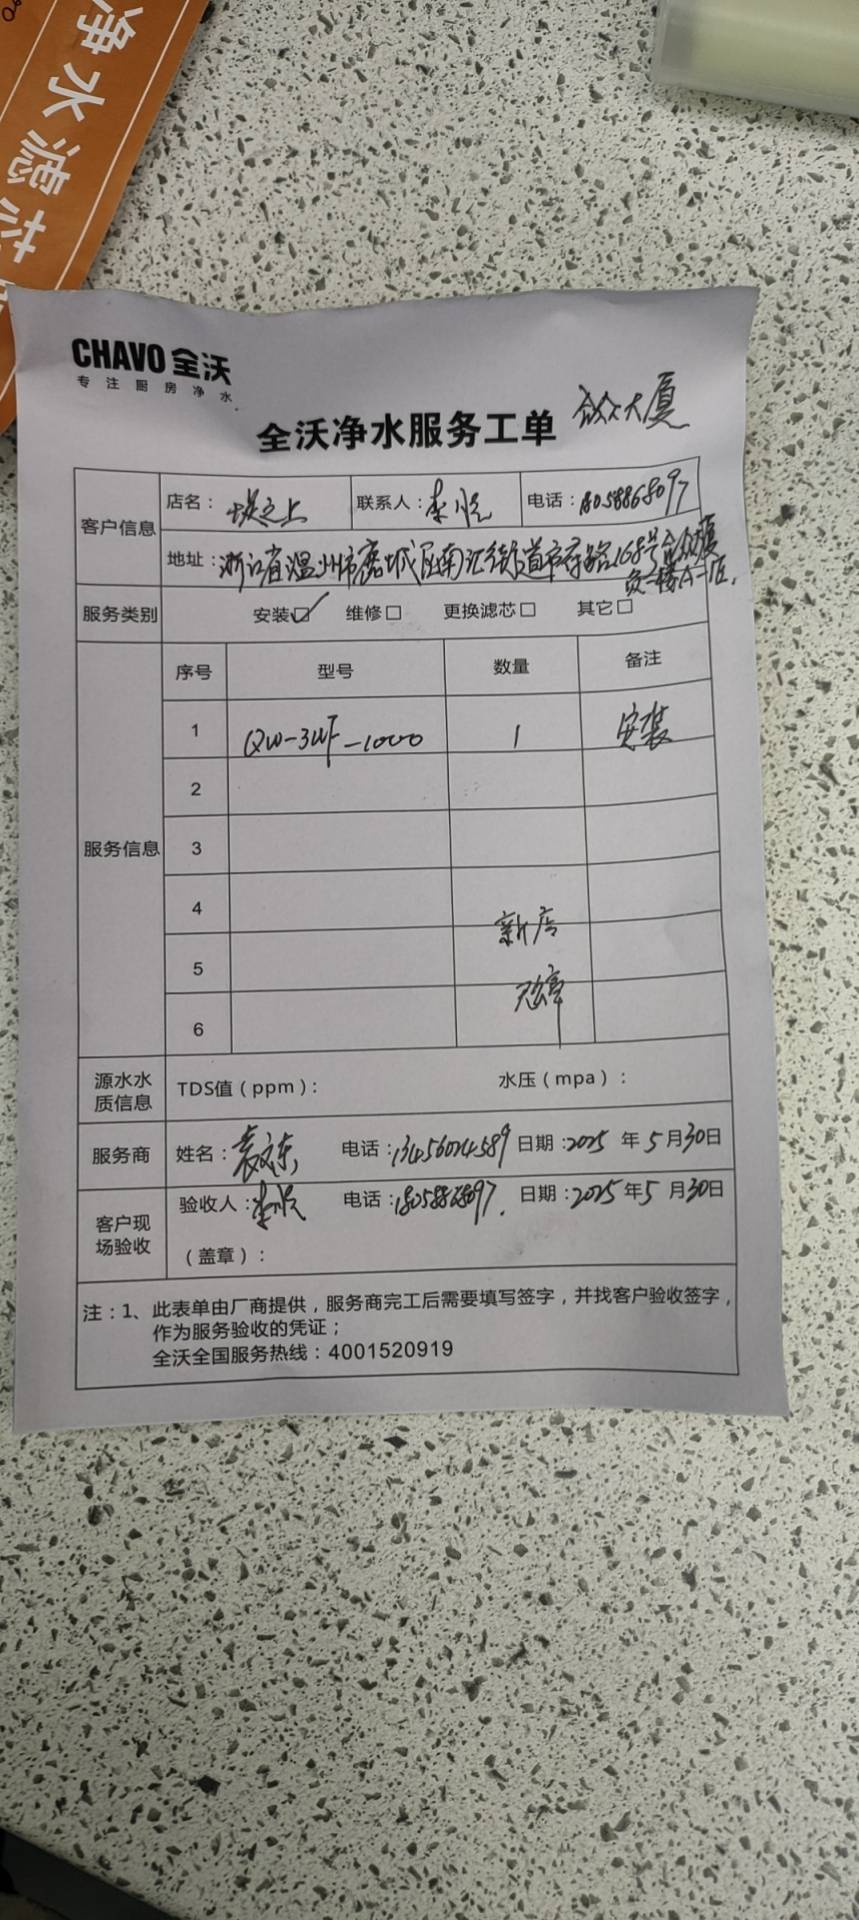 净水滤芯
CHAVO 全沃
专注厨房净水
全沃净水服务工单 合众大厦
客户信息 店名： 之上 联系人：李悦 电话：18058868097
地址：浙江省温州市鹿城区南汇街道市府路168号合众大厦
负一楼A一店.
服务类别 安装☑ 维修□ 更换滤芯□ 其它□
服务信息 序号 型号 数量 备注
1 QW-3WF-1000 1 安装
2
3
4
新店
5
6
源水水质信息 TDS值（ppm）： 水压（mpa）：
服务商 姓名：袁文东 电话：13456024589 日期：2025 年 5 月 30 日
客户现场验收 验收人：李悦 电话：18058868097. 日期：2025 年 5 月 30 日
（盖章）：
注：1、此表单由厂商提供，服务商完工后需要填写签字，并找客户验收签字，
作为服务验收的凭证；
全沃全国服务热线：4001520919